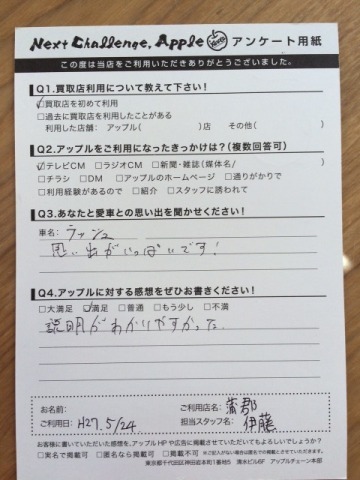 Next Challenge, Apple アンケート用紙
この度は当店をご利用いただきありがとうございました。
Q1.買取店利用について教えて下さい!
☑買取店を初めて利用
□過去に買取店を利用したことがある
利用した店舗: アップル( )店 その他( )
Q2.アップルをご利用になったきっかけは?(複数回答可)
☑テレビCM □ラジオCM □新聞・雑誌(媒体名/ )
□チラシ □DM □アップルのホームページ □通りがかりで
□利用経験があるので □紹介 □スタッフに誘われて
Q3.あなたと愛車との思い出を聞かせください!
車名: ラッシュ
思い出がいっぱいです!
Q4.アップルに対する感想をぜひお書きください!
□大満足 ☑満足 □普通 □もう少し □不満
説明がわかりやすかった
お名前: ご利用店名: 蒲郡
ご利用日: H27.5/24 担当スタッフ名: 伊藤
お客様に書いていただいた感想を、アップルHPや広告に掲載させていただいてもよろしいでしょうか?
□実名で掲載可 □匿名なら掲載可 □掲載不可 ※ご記入がない場合は匿名での掲載とさせていただきます。
東京都千代田区神田岩本町1番地5 清水ビル6F アップルチェーン本部